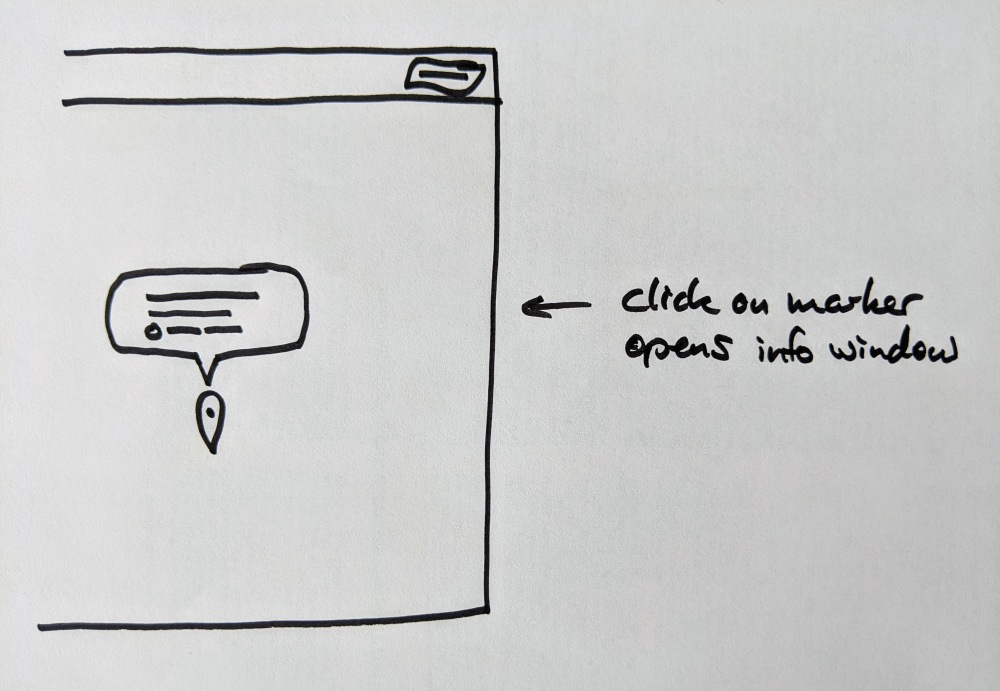 click on marker
opens info window